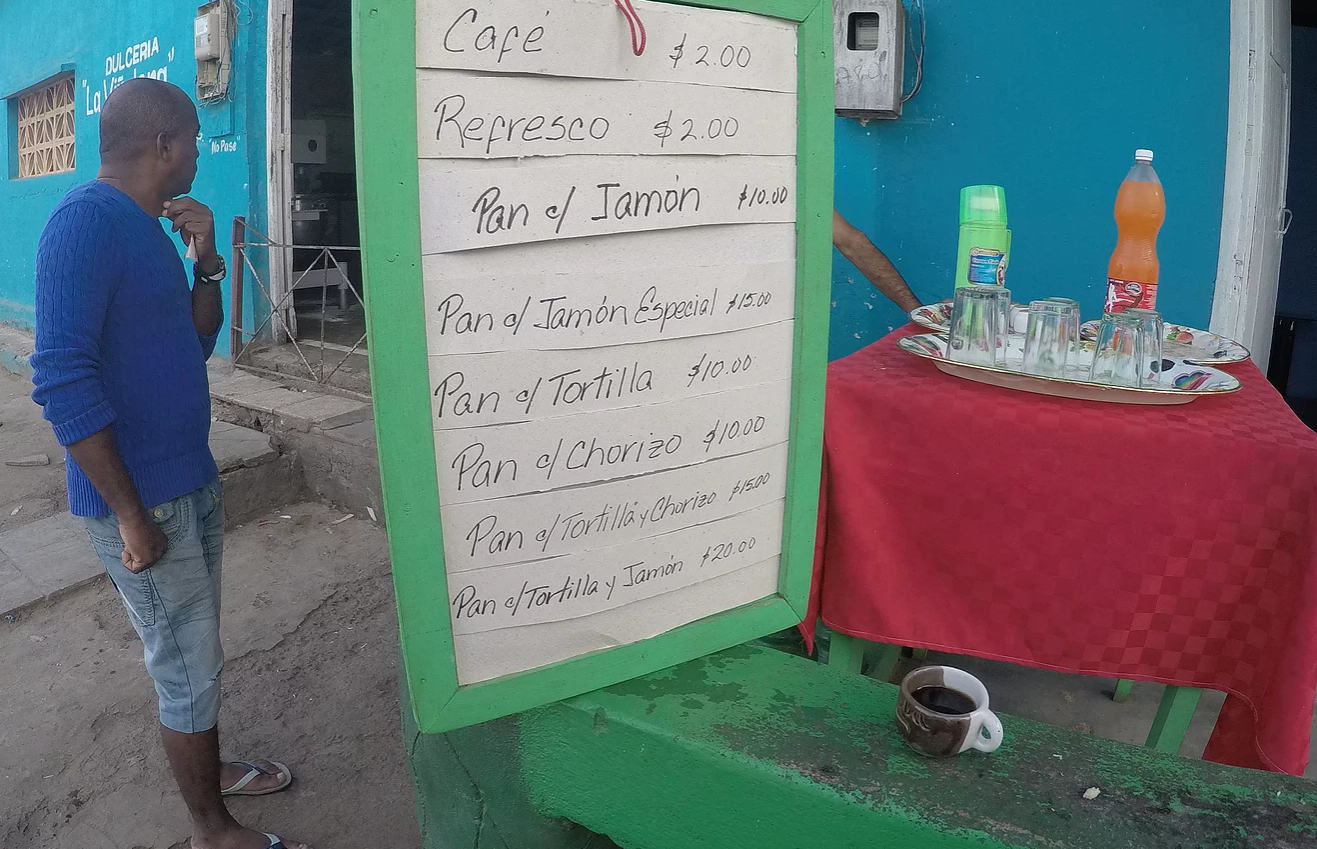 DULCERIA
"La
"No Pase"
Café $2.00
Refresco $2.00
Pan c/ Jamón $10.00
Pan c/ Jamón Especial $15.00
Pan c/ Tortilla $10.00
Pan c/ Chorizo $10.00
Pan c/ Tortilla y Chorizo $15.00
Pan c/ Tortilla y Jamón $20.00